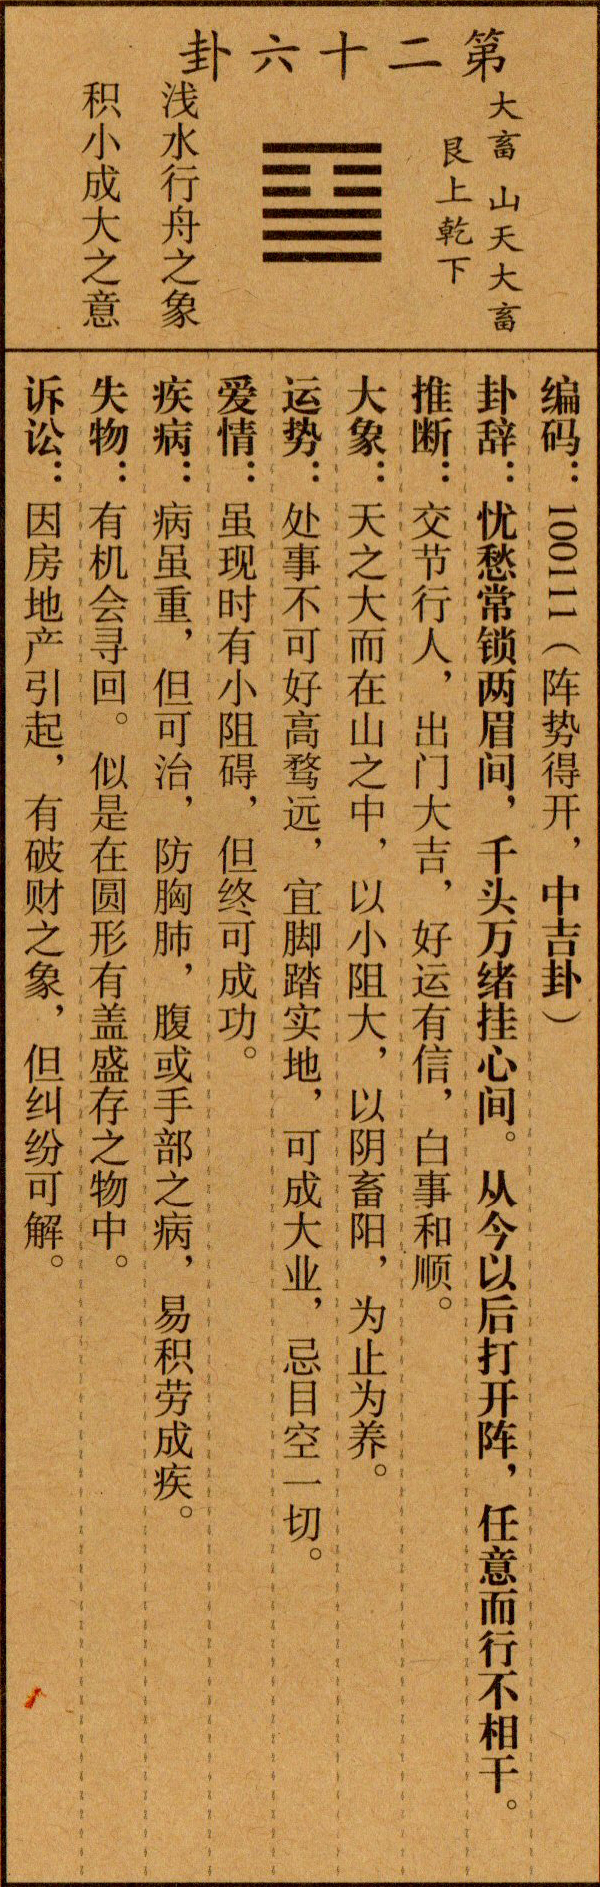 第二十六卦
大畜 山天大畜
艮上乾下
浅水行舟之象
积小成大之意
编码：100111（阵势得开，中吉卦）
卦辞：忧愁常锁两眉间，千头万绪挂心间。从今以后打开阵，任意而行不相干。
推断：交节行人，出门大吉，好运有信，白事和顺。
大象：天之大而在山之中，以小阻大，以阴畜阳，为止为养。
运势：处事不可好高骛远，宜脚踏实地，可成大业，忌目空一切。
爱情：虽现时有小阻碍，但终可成功。
疾病：病虽重，但可治，防胸肺，腹或手部之病，易积劳成疾。
失物：有机会寻回。似是在圆形有盖盛存之物中。
诉讼：因房地产引起，有破财之象，但纠纷可解。